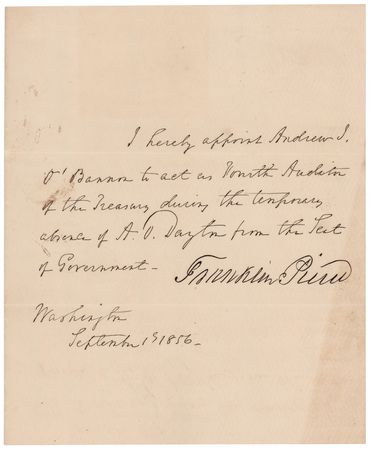 I hereby appoint Andrew J.
O' Bannon to act as Fourth Auditor
of the Treasury during the temporary
absence of A. O. Dayton from the Seat
of Government –
Franklin Pierce
Washington
September 1st 1856 –